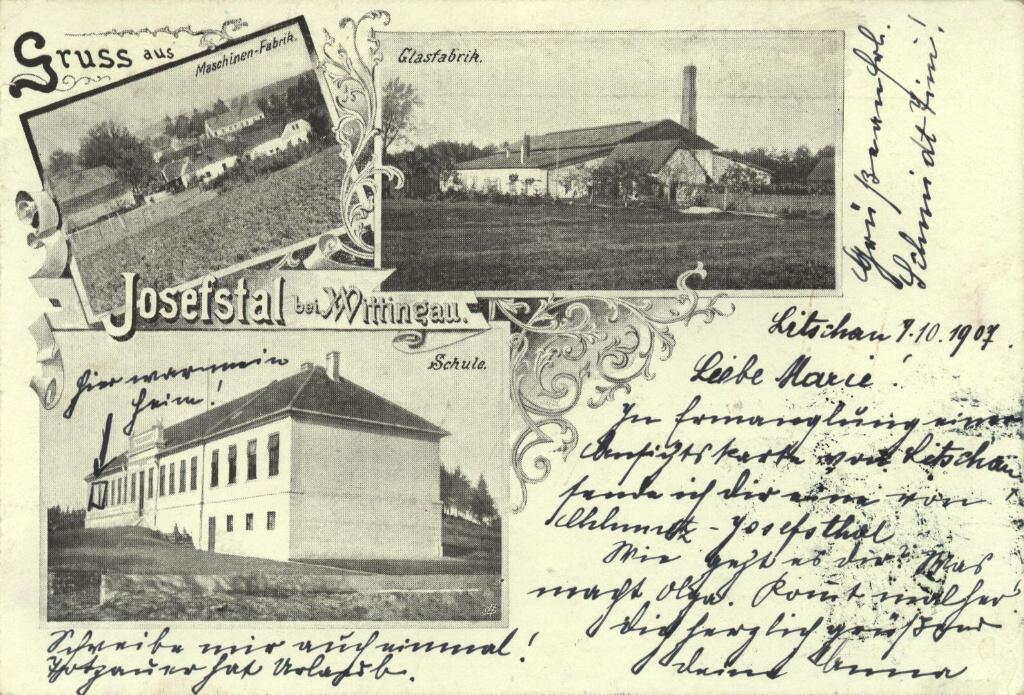 Gruss aus
Maschinen-Fabrik.
Glasfabrik.
Josefstal bei Wittingau.
Schule.
Hier war mein
Heim!
Grüße an Frl.
Schmidt
Litschau 7.10.1907.
Liebe Marie!
In Ermanglung einer
Ansichtskarte von Litschau
sende ich dir eine von
Chlumetz-Josefsthal
Wie geht es dir? Was
macht Olga. Komt
Dich herzlich grüßend
deine Anna
Schreibe mir auch einmal!
hat Urlaub.